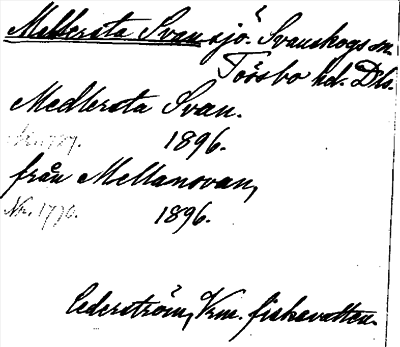 Mellersta Svan sjö. Svanskogs sn.
Tössbo hd. Dls.
Medlersta Svan.
1896.
från Mellansvan,
Nr. 1770. 1896.
Cederström, Vrm. fiskevatten.